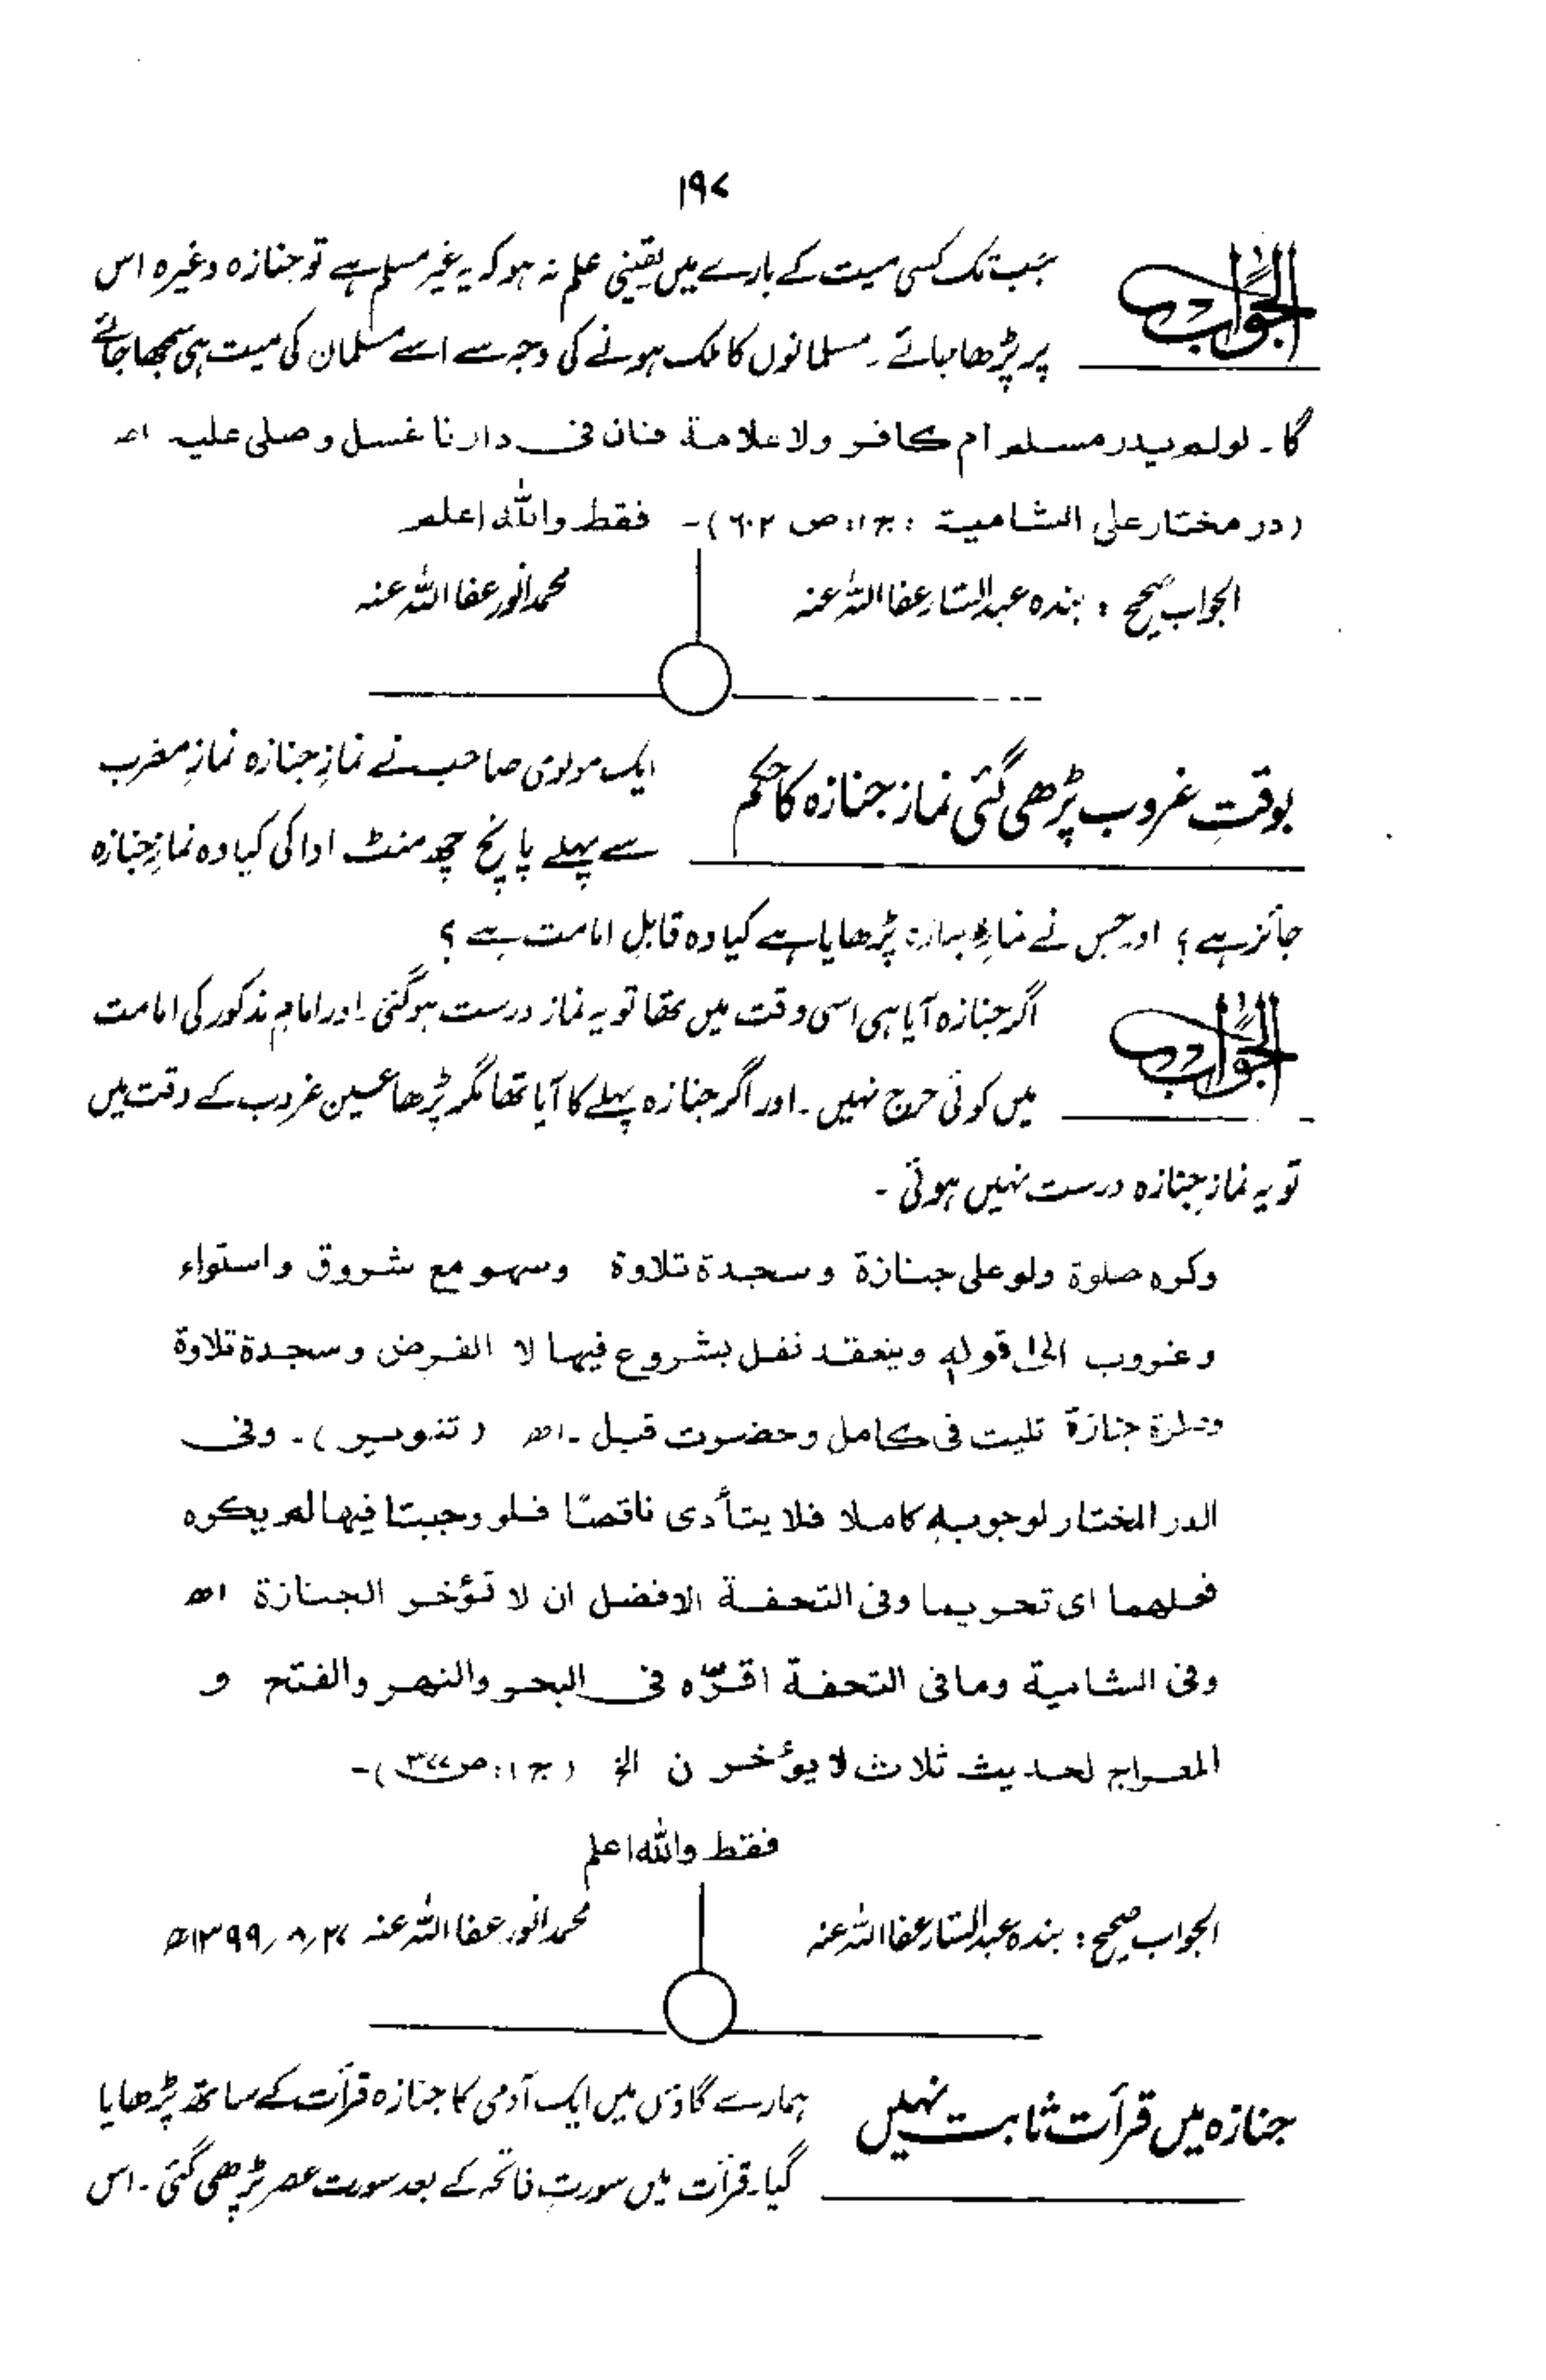 ۱۹۷
الجواب
جب تک کسی میت کے بارے میں یقینی علم نہ ہو کہ یہ غیر مسلم ہے تو جنازہ وغیرہ اس
پر پڑھا جائے ۔ مسلمانوں کا ملک ہونے کی وجہ سے اسے مسلمان کی میت ہی سمجھا جائے
گا ۔ لولم یدر مسلم ام کافر ولا علامة فان فی دارنا غسل و صلی علیہ اھ
( در مختار علی الشامیة : ج ۱: ص ۶۰۲ )۔ فقط واللہ اعلم
الجواب صحیح : بندہ عبدالستار عفا اللہ عنہ محمد انور عفا اللہ عنہ
بوقتِ غروب پڑھی گئی نماز جنازہ کا حکم
ایک مولوی صاحب نے نمازِ جنازہ نمازِ مغرب
سے پہلے پانچ چھ منٹ ادا کی کیا وہ نمازِ جنازہ
جائز ہے ؟ اور جس نے نمازِ جنازہ پڑھایا ہے کیا وہ قابلِ امامت ہے ؟
الجواب
اگر جنازہ آیا ہی اسی وقت میں تھا تو یہ نماز درست ہو گئی ۔ اور امامِ مذکور کی امامت
میں کوئی حرج نہیں ۔ اور اگر جنازہ پہلے کا آیا تھا مگر پڑھا عین غروب کے وقت میں
تو یہ نمازِ جنازہ درست نہیں ہوئی ۔
وکرہ صلوة ولو علی جنازة و سجدة تلاوة وسہو مع شروق و استواء
و غروب الی قولہ وینعقد نفل بشروع فیہا لا الفرض و سجدة تلاوة
وصلوة جنازة تلیت فی کامل و حضرت قبل ۔ اھ ( تنویر ) ۔ وفی
الدر المختار لوجوبہ کاملا فلا یتأدی ناقصًا فلو وجبتا فیہا لم یکرہ
فعلہما ای تحریما وفی التحفة الافضل ان لا تؤخر الجنازة اھ
وفی الشامیة وما فی التحفة اقرّہ فی البحر والنہر والفتح و
المعراج لحدیث ثلاث لا یوٴخرن الخ ( ج ۱: ص ۳۷۷ )۔
فقط واللہ اعلم
الجواب صحیح : بندہ عبدالستار عفا اللہ عنہ محمد انور عفا اللہ عنہ ۲۷؍۸؍۱۳۹۹ھ
جنازہ میں قرأت ثابت نہیں
ہمارے گاؤں میں ایک آدمی کا جنازہ قرأت کے ساتھ پڑھایا
گیا۔ قرأت میں سورتِ فاتحہ کے بعد سورت عصر پڑھی گئی ۔ اس